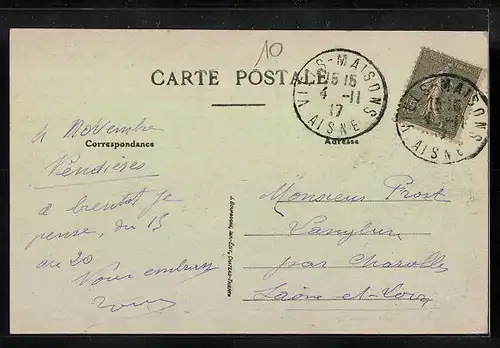 10
CARTE POSTALE
VIELS-MAISONS
15 15
4 -11
17
AISNE
VIELS-MAISONS
AISNE
Correspondance
Adresse
4 Novembre
Vendières
à bientôt je
pense, du 15
au 20
Vous embrasse
Monsieur Prost
par Charolles
Saône et-Loire